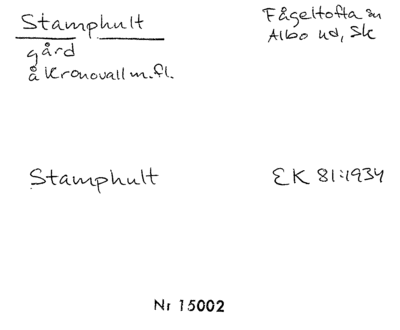 Stamphult
gård
å Kronovall m.fl.
Fågeltofta sn
Albo hd, Sk
Stamphult
EK 81:1934
Nr 15002